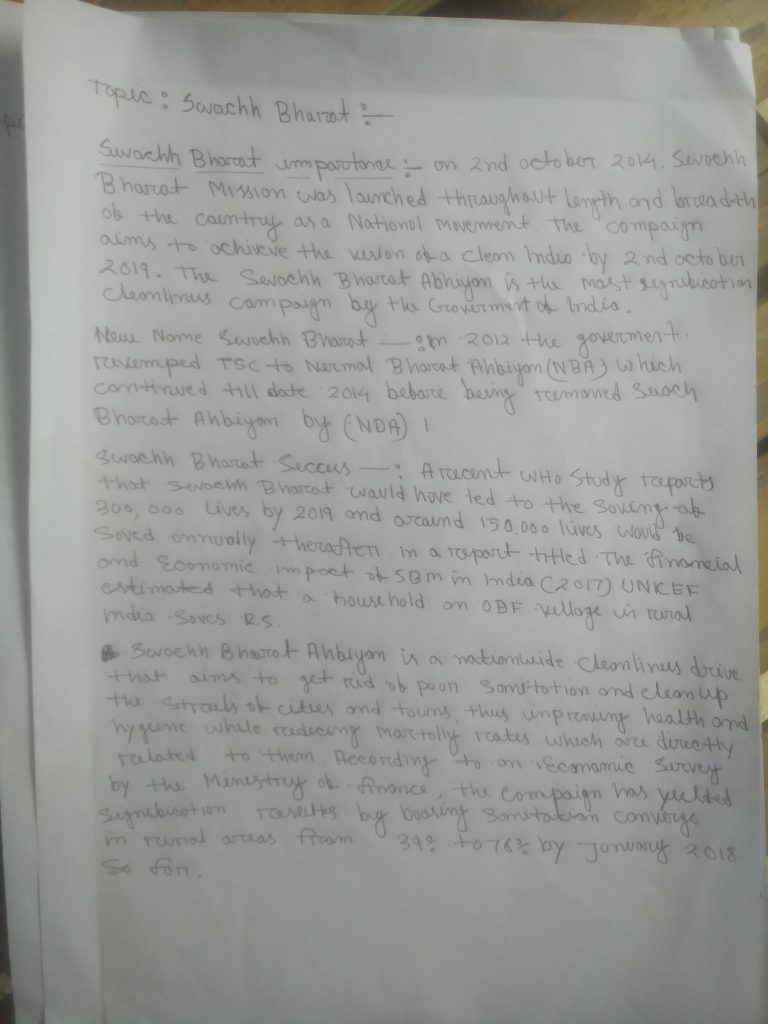 Topic : Swachh Bharat :-
Swachh Bharat importance :- on 2nd october 2014. Swachh
Bharat Mission was launched throughout length and breadth
of the country as a National movement. The compaign
aims to achireve the vision of a clean India by 2nd october
2019. The Swachh Bharat Abhiyan is the most signification
Cleanliness campaign by the Goverment of India.
New Name Swachh Bharat — : in 2012 the goverment.
revemped TSC to Nermal Bharat Ahbiyan (NBA) which
continued till date 2014 before being remaned Swach
Bharat Ahbiyan by (NDA) |
Swachh Bharat Seccus — : A recent WHO Study reports
that Swachh Bharat would have led to the Soving of
300,000 Lives by 2019 and around 150.000 lives would be
Soved annually therafter. In a report titled The financial
and Economic impact of SBM in India (2017) UNKEF
estimated that a household on ODF village in rural
India -Soves RS.
Swachh Bharat Ahbiyan is a nationwide Cleanliness drive
that aims to get rid of poor Sanitation and clean up
the Streets of cities and towns, thus improving health and
hygiene while reducing Martolly rates which are directly
ralated to them. According to an Economic Servey
by the Ministry of finance, the compaign has yeilted
signification rasults by boosing Sanitation converge
in rural areas from 39% to 76% by January 2018
So far.